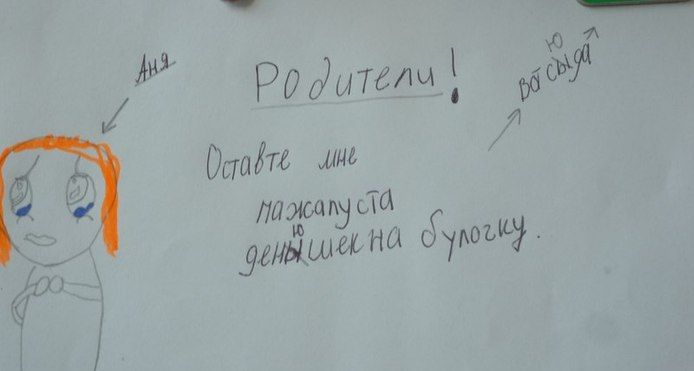 Аня
Родители!
во сюда
Оставте мне
пажалуста
денюшек на булочку.